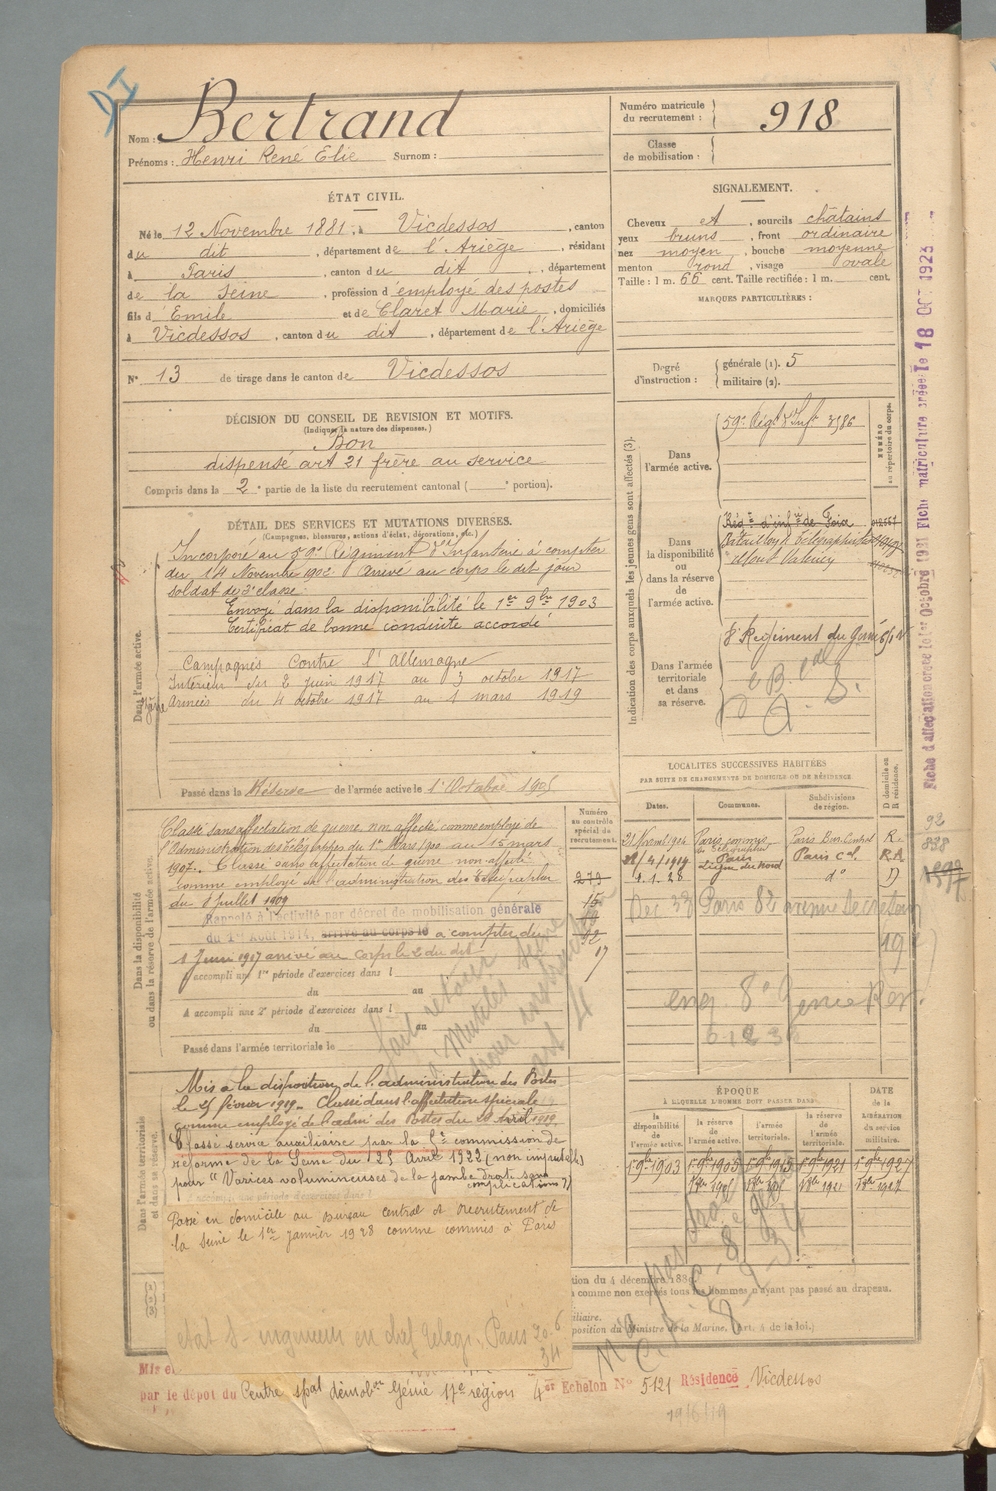 Nom : Bertrand
Prénoms : Henri René Elie Surnom :
Numéro matricule du recrutement : 918
Classe de mobilisation :
ÉTAT CIVIL.
Né le 12 Novembre 1881, à Vicdessos, canton
du dit, département de l'Ariège, résidant
à Paris, canton du dit, département
de la Seine, profession d'employé des postes
fils d'Emile et de Claret Marie, domiciliés
à Vicdessos, canton du dit, département de l'Ariège
N° 13 de tirage dans le canton de Vicdessos
SIGNALEMENT.
Cheveux et, sourcils châtains
yeux bruns, front ordinaire
nez moyen, bouche moyenne
menton rond, visage ovale
Taille : 1 m. 66 cent. Taille rectifiée : 1 m. cent.
MARQUES PARTICULIÈRES :
Degré d'instruction : générale (1). 5
militaire (2).
DÉCISION DU CONSEIL DE REVISION ET MOTIFS.
(Indiquer la nature des dispenses.)
Bon
dispensé art 21 frère au service
Compris dans la 2e partie de la liste du recrutement cantonal ( portion).
DÉTAIL DES SERVICES ET MUTATIONS DIVERSES.
(Campagnes, blessures, actions d'éclat, décorations, etc.)
Dans l'armée active.
Incorporé au 59e Régiment d'Infanterie à compter
du 14 Novembre 1902. Arrivé au corps le dit jour
soldat de 2e classe.
Envoyé dans la disponibilité le 1er 9bre 1903
Certificat de bonne conduite accordé
Campagnes Contre l'Allemagne
Intérieur du 2 juin 1917 au 3 octobre 1917
Armées du 4 octobre 1917 au 1 mars 1919
Passé dans la Réserve de l'armée active le 1er Octobre 1905
Indication des corps auxquels les jeunes gens sont affectés (3).
NUMÉRO au répertoire du corps.
Dans l'armée active.
59e Régt d'Inf 3586
Dans la disponibilité ou dans la réserve de l'armée active.
Régt d'infie de Foix
Bataillon de Télégraphistes
Mont Valérien
Dans l'armée territoriale et dans sa réserve.
8e Régiment du Génie
Fiche d'affectation créée le 1er Octobre 1931 Fiche matriculaire créée le 18 OCT 1923
LOCALITÉS SUCCESSIVES HABITÉES
PAR SUITE DE CHANGEMENTS DE DOMICILE OU DE RÉSIDENCE
Dates. Communes. Subdivisions de région. D domicile ou R résidence.
Paris commis Paris Bur. Central R.
21/4/1914 Paris Ligne du Nord Paris Cal R.
1.1.28 do D
Dec 33 Paris 82 avenue
19e
Dans la disponibilité ou dans la réserve de l'armée active.
Numéro au contrôle spécial du recrutement.
Classé sans affectation de guerre non affecté comme employé de
l'Administration des télégraphes du 1er Mars 1900 au 15 mars
1907. Classé sans affectation de guerre non affecté
comme employé de l'administration des Télégraphes
du 8 juillet 1909
Rappelé à l'activité par décret de mobilisation générale
du 1er Août 1914, arrivé au corps le à compter du
1 Juin 1917 arrivé au corps le 2 du dit
A accompli une 1re période d'exercices dans l
du au
A accompli une 2e période d'exercices dans l
du au
Passé dans l'armée territoriale le
Dans l'armée territoriale et dans sa réserve.
Mis à la disposition de l'administration des Postes
le 25 février 1919. Classé dans l'affectation spéciale
comme employé de l'adm des Postes du 29 Avril 1919
Classé service auxiliaire par la 1e commission de
réforme de la Seine du 25 Avril 1922 (non imputable)
pour "Varices volumineuses de la jambe droite sans
complications"
Passé en domicile au bureau central de recrutement de
la Seine le 1er janvier 1928 comme commis à Paris
ÉPOQUE
A LAQUELLE L'HOMME DOIT PASSER DANS
la disponibilité de l'armée active. la réserve de l'armée active. l'armée territoriale. la réserve de l'armée territoriale.
DATE de la LIBÉRATION du service militaire.
1 9bre 1903 1 9bre 1905 1 9bre 1915 1 9bre 1921 1 9bre 1927
tion du 4 décembre 1889.
comme non exercés tous les hommes n'ayant pas passé au drapeau.
iliaire.
position du Ministre de la Marine. (Art. 4 de la loi.)
par le dépôt du Centre spal démobon Génie 17e région 4e Echelon N° 5121 Résidence Vicdessos
19/6/19